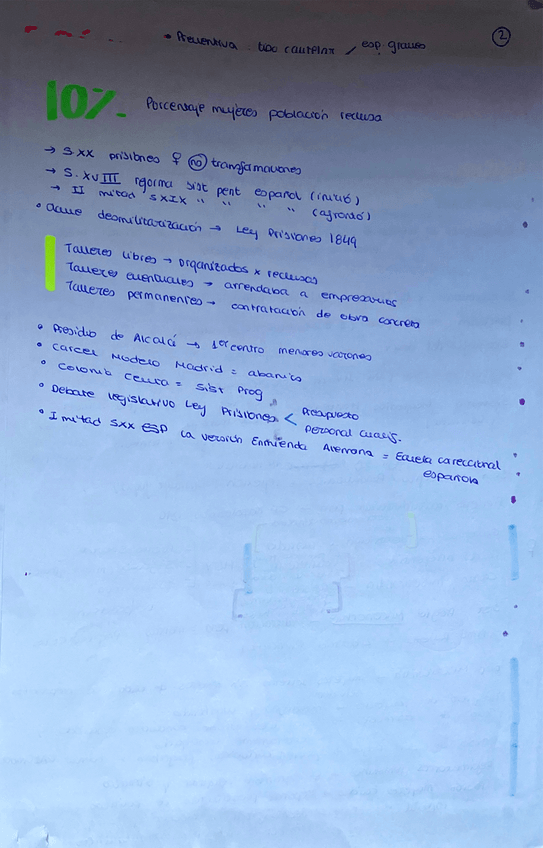 • Preventiva : tipo cautelar / esp. graves
2
10%. Porcentaje mujeres población reclusa
→ S.XX prisiones ♀ no transformaciones
→ S. XVIII reforma sist pent español (inició)
→ II mitad SXIX " " " " (afrontó)
• clave desmilitarización → Ley Prisiones 1849
Talleres libres → organizados x reclusas
Talleres eventuales → arrendaba a empresarios
Talleres permanentes → contratación de obra concreta
• Presidio de Alcalá → 1er centro menores varones
• Carcel Modelo Madrid = abanico
• Colonia Ceuta = Sist Prog
• Debate legislativo Ley Prisiones < Presupuesto
Personal cualif.
• I mitad SXX ESP la versión Enmienda Alemana = Escuela correccional
española